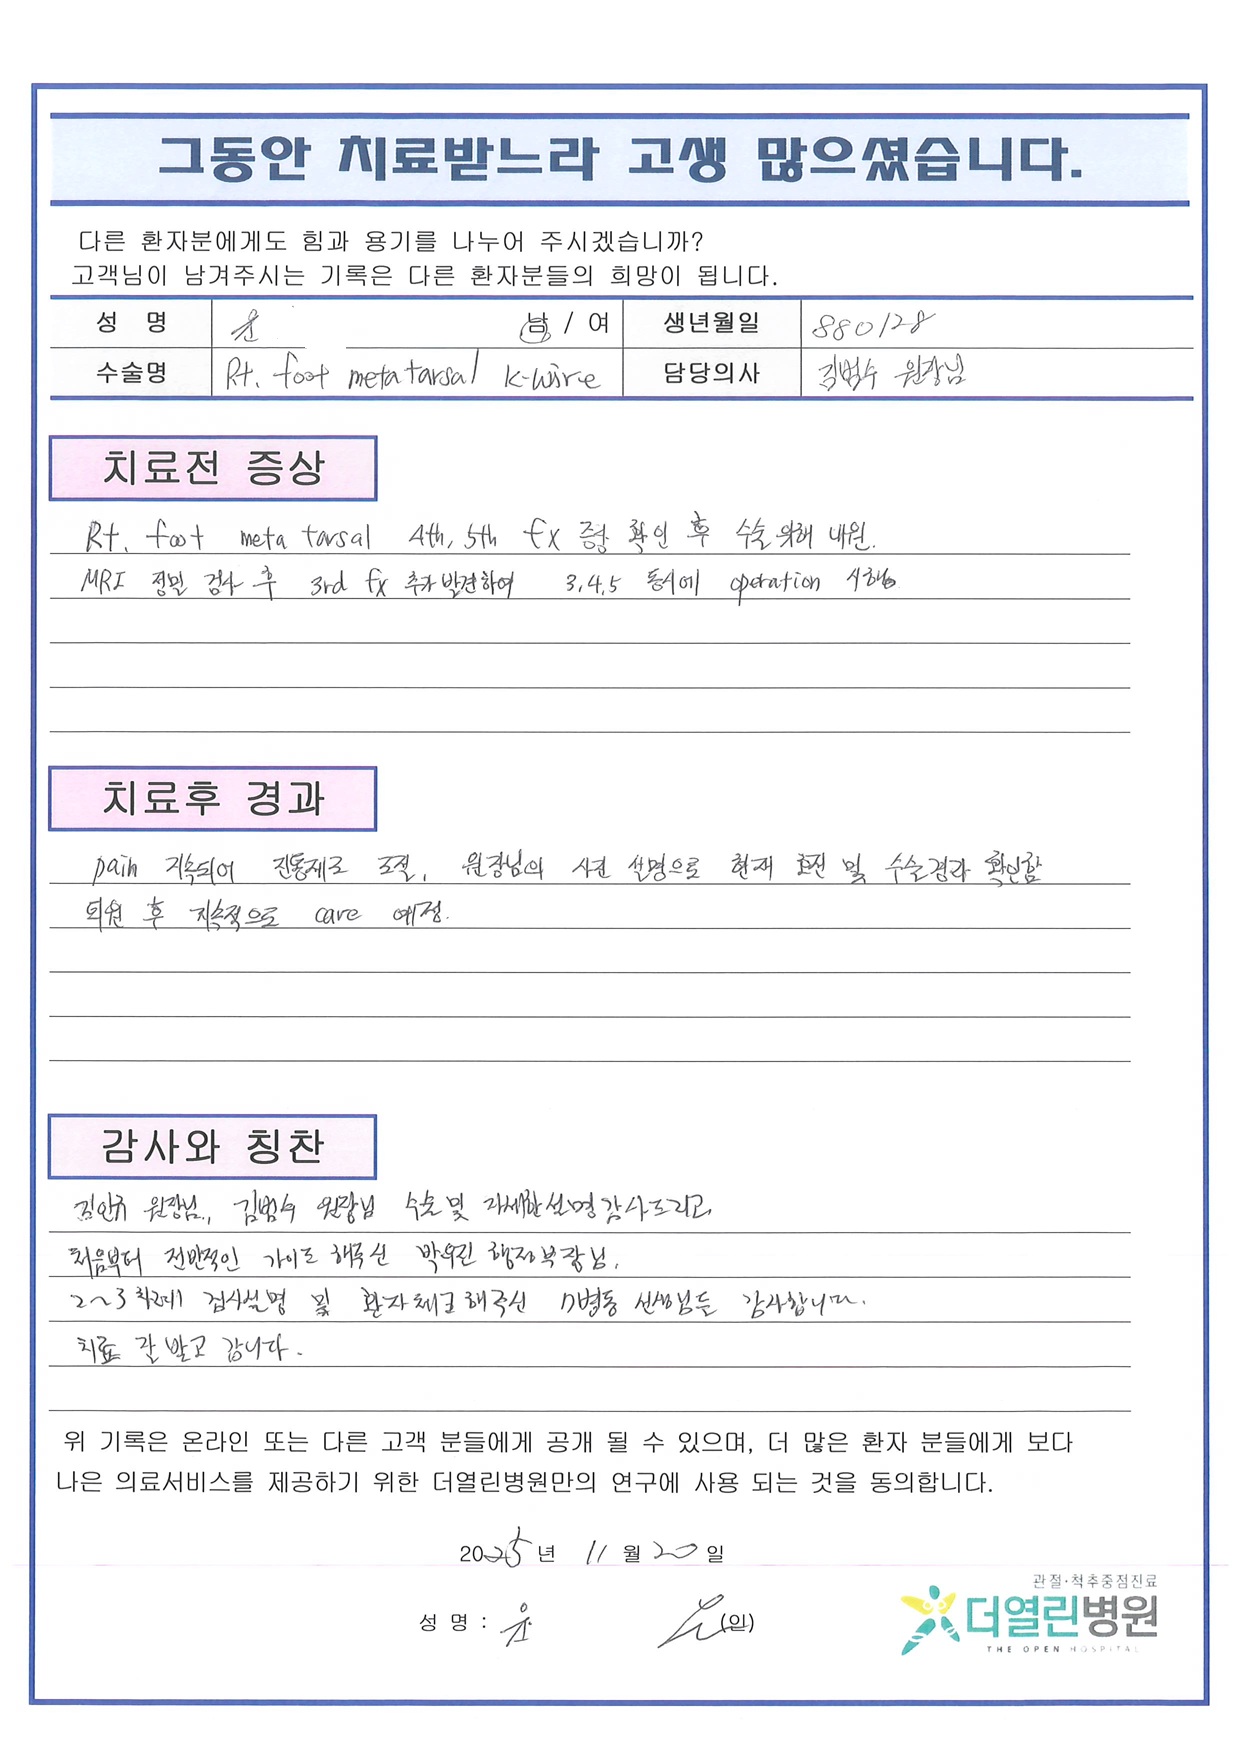 그동안 치료받느라 고생 많으셨습니다.
다른 환자분에게도 힘과 용기를 나누어 주시겠습니까?
고객님이 남겨주시는 기록은 다른 환자분들의 희망이 됩니다.
성 명 윤 남 / 여 생년월일 880128
수술명 Rt. foot metatarsal k-wire 담당의사 김범수 원장님
치료전 증상
Rt. foot meta tarsal 4th, 5th fx 확인 후 수술 위해 내원.
MRI 정밀 검사 후 3rd fx 추가 발견하여 3,4,5 동시에 operation 시행
치료후 경과
pain 지속되어 진통제로 조절, 원장님의 사진 설명으로 현재 호전 및 수술경과 확인함
퇴원 후 지속적으로 care 예정.
감사와 칭찬
원장님, 김범수 원장님 수술 및 자세한 설명 감사드리고,
처음부터 전반적인 가이드 해주신 박우진 행정부장님,
2~3 검사설명 및 환자체크 해주신 7병동 선생님들 감사합니다.
치료 잘 받고 갑니다.
위 기록은 온라인 또는 다른 고객 분들에게 공개 될 수 있으며, 더 많은 환자 분들에게 보다
나은 의료서비스를 제공하기 위한 더열린병원만의 연구에 사용 되는 것을 동의합니다.
2025년 11월 20일
관절·척추중점진료
성 명 : 윤 (인) 더열린병원
THE OPEN HOSPITAL